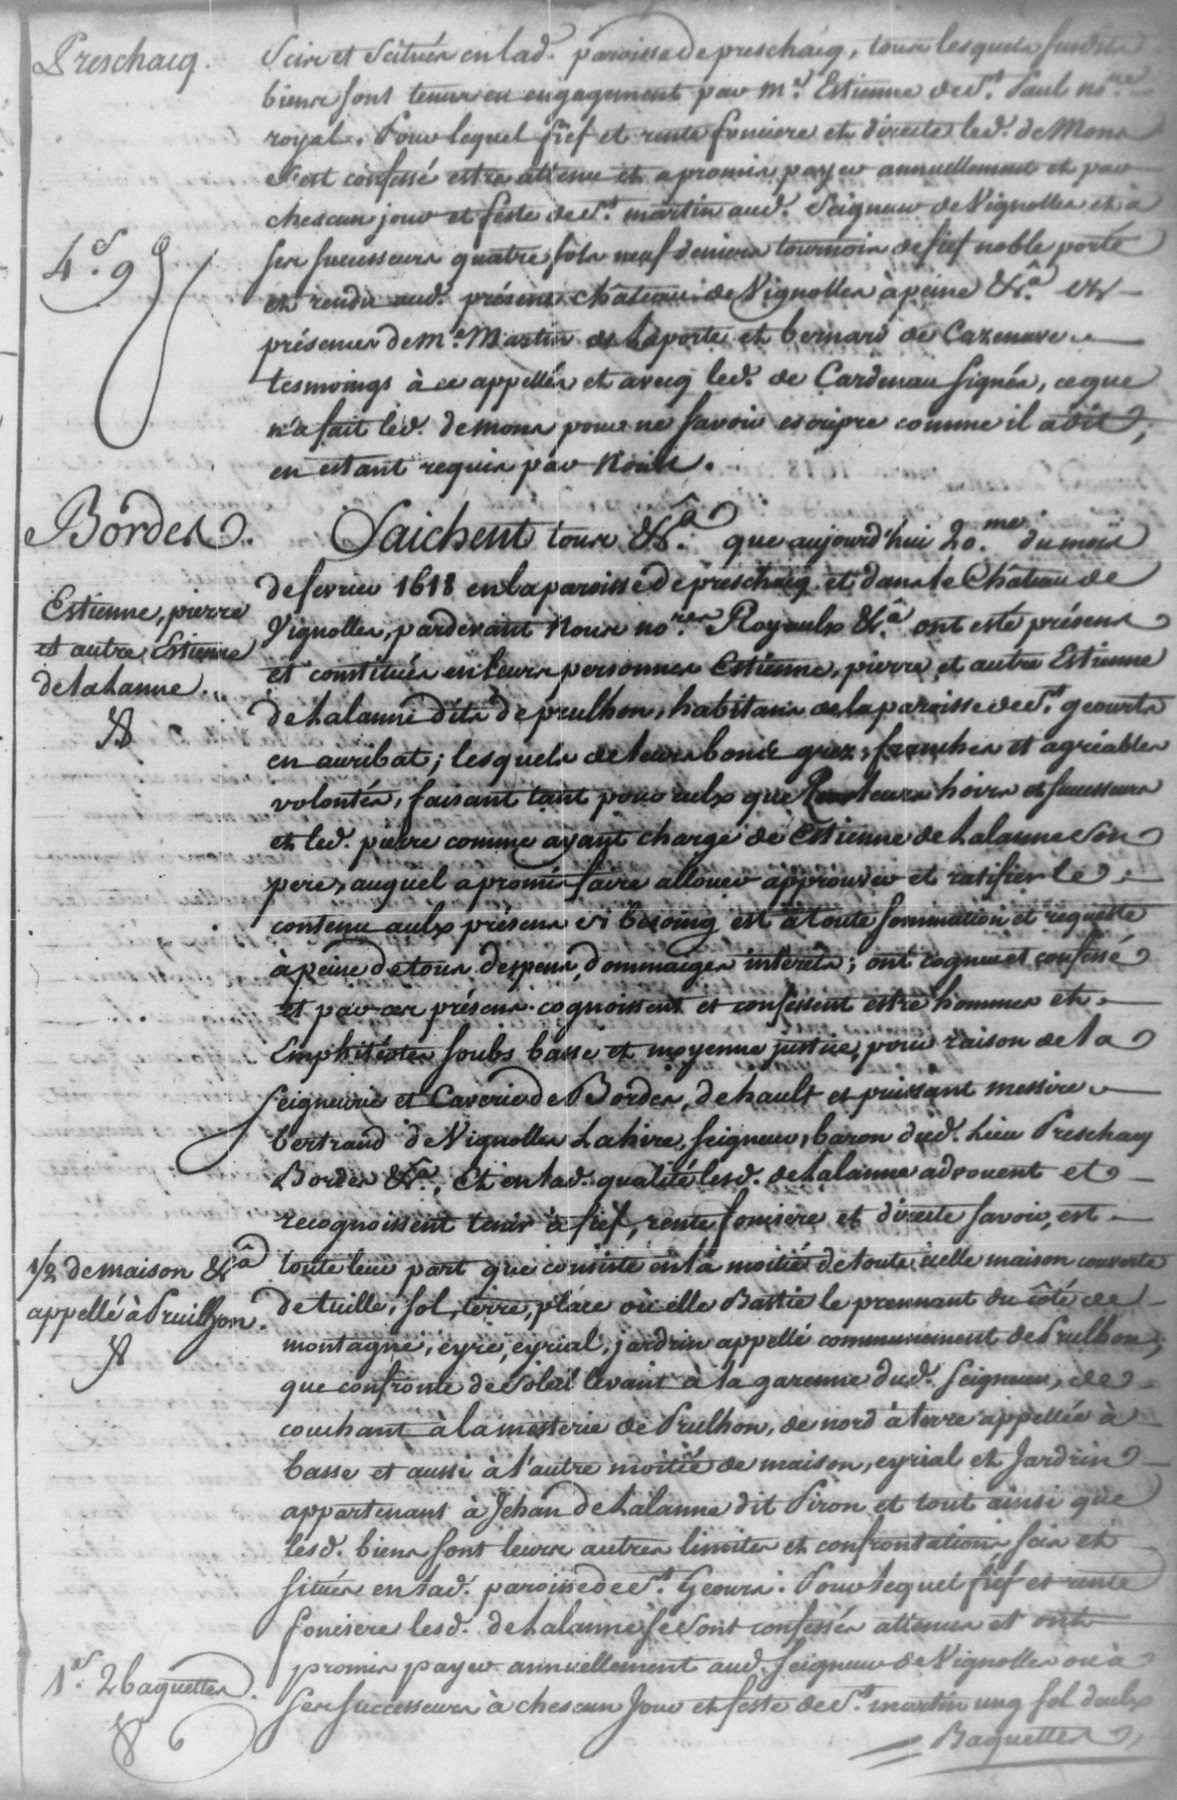 Preschacq.
Scis et Scitués en lad. paroisse de preschacq, tous lesquels susdits
biens sont tenus en engagement par me. Estienne de St. Paul nore.
royal. Pour lequel fief et rente fonciere et directe led. de Mons
s'est confessé estre attenu et a promis payer annuellement et par
chescun jour et feste de St. martin aud. Seigneur de Vignolles et à
4s. 9d
ses successeurs quatre sols neuf deniers tournois de fief noble porté
et rendu aud. présent château de Vignolles à peine &ca. ez
présences de me. Martin de Laporte et bernard de Cazenave
tesmoings à ce appellés et avecq led. de Cardenau signés, ce que
n'a fait led. de mons pour ne savoir escripre comme il a dit,
en estant requis par Nous.
Bordes.
Saichent tous &ca. que aujourd'hui 20.me du mois
de fevrier 1618 en la paroisse de preschacq et dans le Château de
Estienne, pierre
et autre Estienne
de Lalanne.
Vignolles, pardevant Nous nores. Royaulx &ca. ont esté présens
et constitués en leurs personnes Estienne, pierre, et autre Estienne
de Lalanne dits de prulhon, habitans de la paroisse de St. geours
en auribat; lesquels de leurs bons grez, franches et agréables
volontés, faisant tant pour eulx que leurs hoirs et successeurs
et led. pierre comme ayant charge de Estienne de Lalanne son
pere, auquel a promis faire allouer approuver et ratifier le
contenu aulx présens si besoing est à toute sommation et requeste
à peine de tous despens, dommaiges interets; ont cogneu et confessé
et par ces présens cognoissent et confessent estre hommes et
Emphitéotes soubs basse et moyenne justice, pour raison de la
Seigneurie et Caverie de Bordes, de hault et puissant messire
bertrand de Vignolles Lahire, seigneur, baron dud. Lieu Preschacq
Bordes &ca., Et en lad. qualité lesd. de Lalanne advouent et
recognoissent tenir à fief, rente fonciere et directe savoir, est
1/2 de maison &ca
appellé à Pruilhon.
toute leur part que consiste en la moitié de toute icelle maison couverte
de tuille, sol, terre, place où elle Bastie le prennant du côté de
montagne, eyre, eyrial, jardrin appellé communement de Prulhon,
que confronte de soleil levant à la garenne dud. Seigneur, de
couchant à la mesterie de Prulhon, de nord à terre appellée à
basse et aussi à l'autre moitié de maison, eyrial et Jardrin
appartenant à Jehan de Lalanne dit Piron et tout ainsi que
lesd. biens sont leurs autres limites et confrontations scis et
situés en lad. paroisse de St. Geours. Pour lequel fief et rente
fonciere lesd. de Lalanne se sont confessés attenus et ont
promis payer annuellement aud. Seigneur de Vignolles ou à
1s. 2 baquettes.
ses successeurs à chescun Jour et feste de St. martin ung sol deulx
Baquettes,